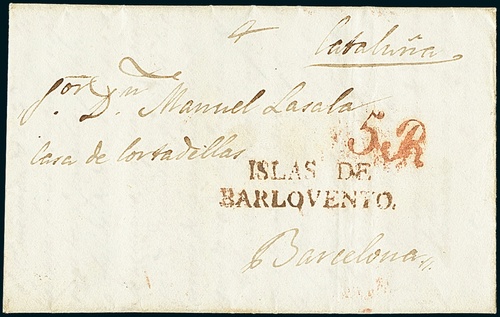 Cataluña
Sor. Dn. Manuel Lasala
Casa de Cortadellas
5 R
ISLAS DE
BARLOVENTO.
Barcelona